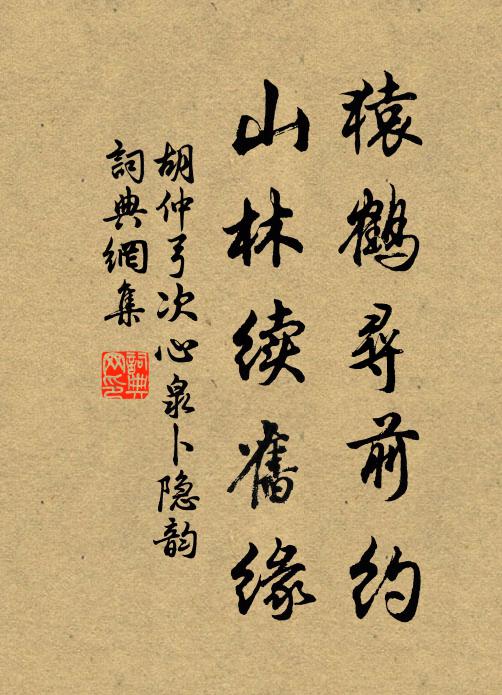 猿鹤寻前约
山林续旧缘
胡仲弓次心泉卜隐韵
詞典網集
詞典网印